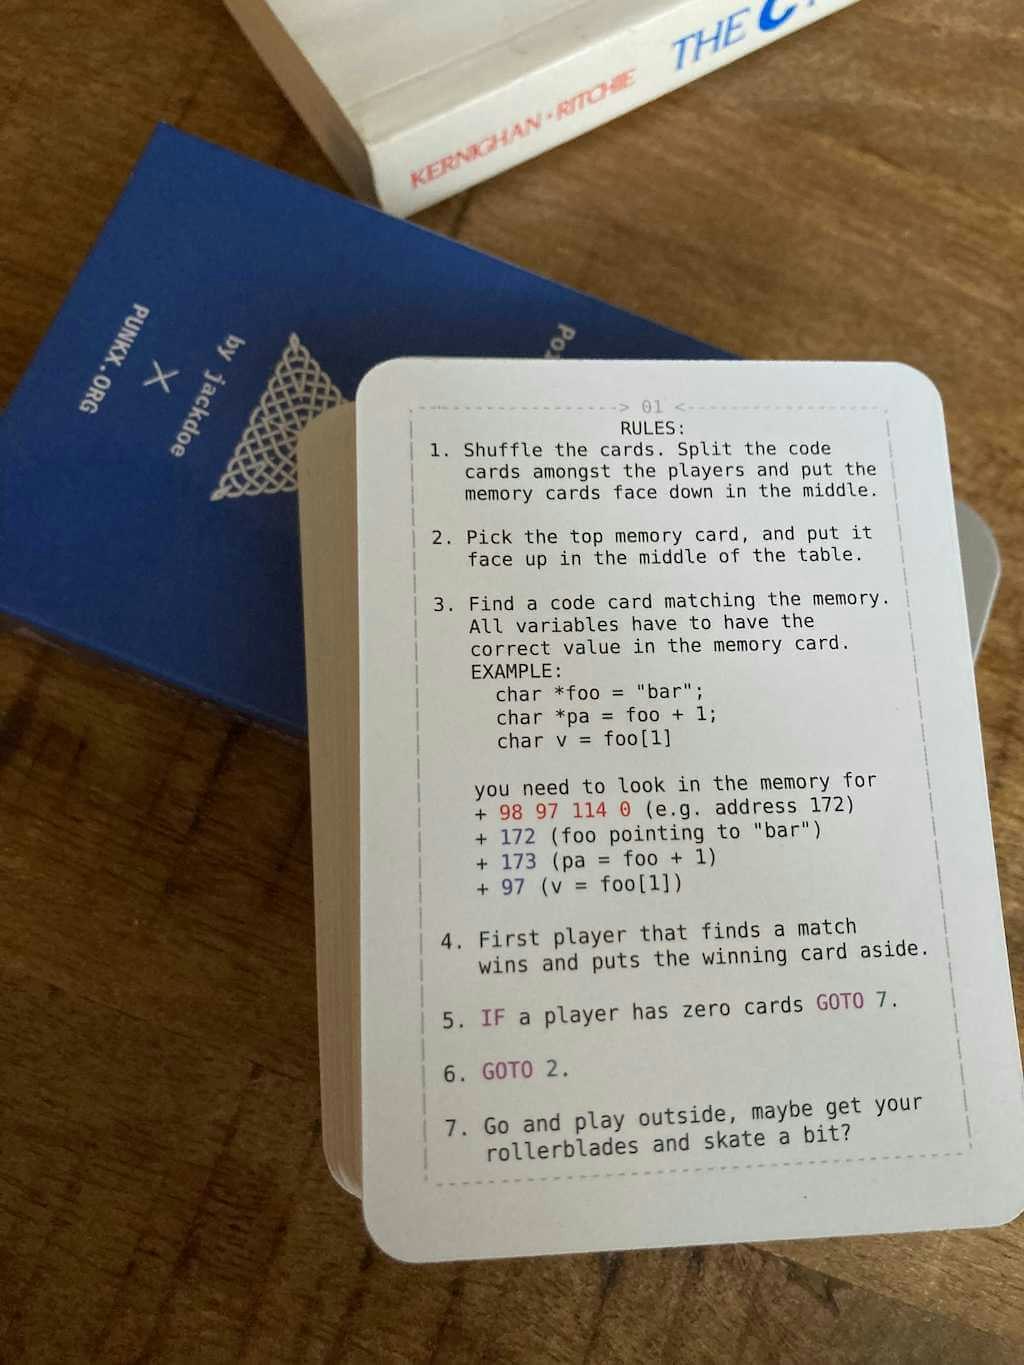 THE C
KERNIGHAN · RITCHIE
PUNKX.ORG
X
by jackdoe
> 01 <
RULES:
1. Shuffle the cards. Split the code
cards amongst the players and put the
memory cards face down in the middle.
2. Pick the top memory card, and put it
face up in the middle of the table.
3. Find a code card matching the memory.
All variables have to have the
correct value in the memory card.
EXAMPLE:
char *foo = "bar";
char *pa = foo + 1;
char v = foo[1]
you need to look in the memory for
+ 98 97 114 0 (e.g. address 172)
+ 172 (foo pointing to "bar")
+ 173 (pa = foo + 1)
+ 97 (v = foo[1])
4. First player that finds a match
wins and puts the winning card aside.
5. IF a player has zero cards GOTO 7.
6. GOTO 2.
7. Go and play outside, maybe get your
rollerblades and skate a bit?